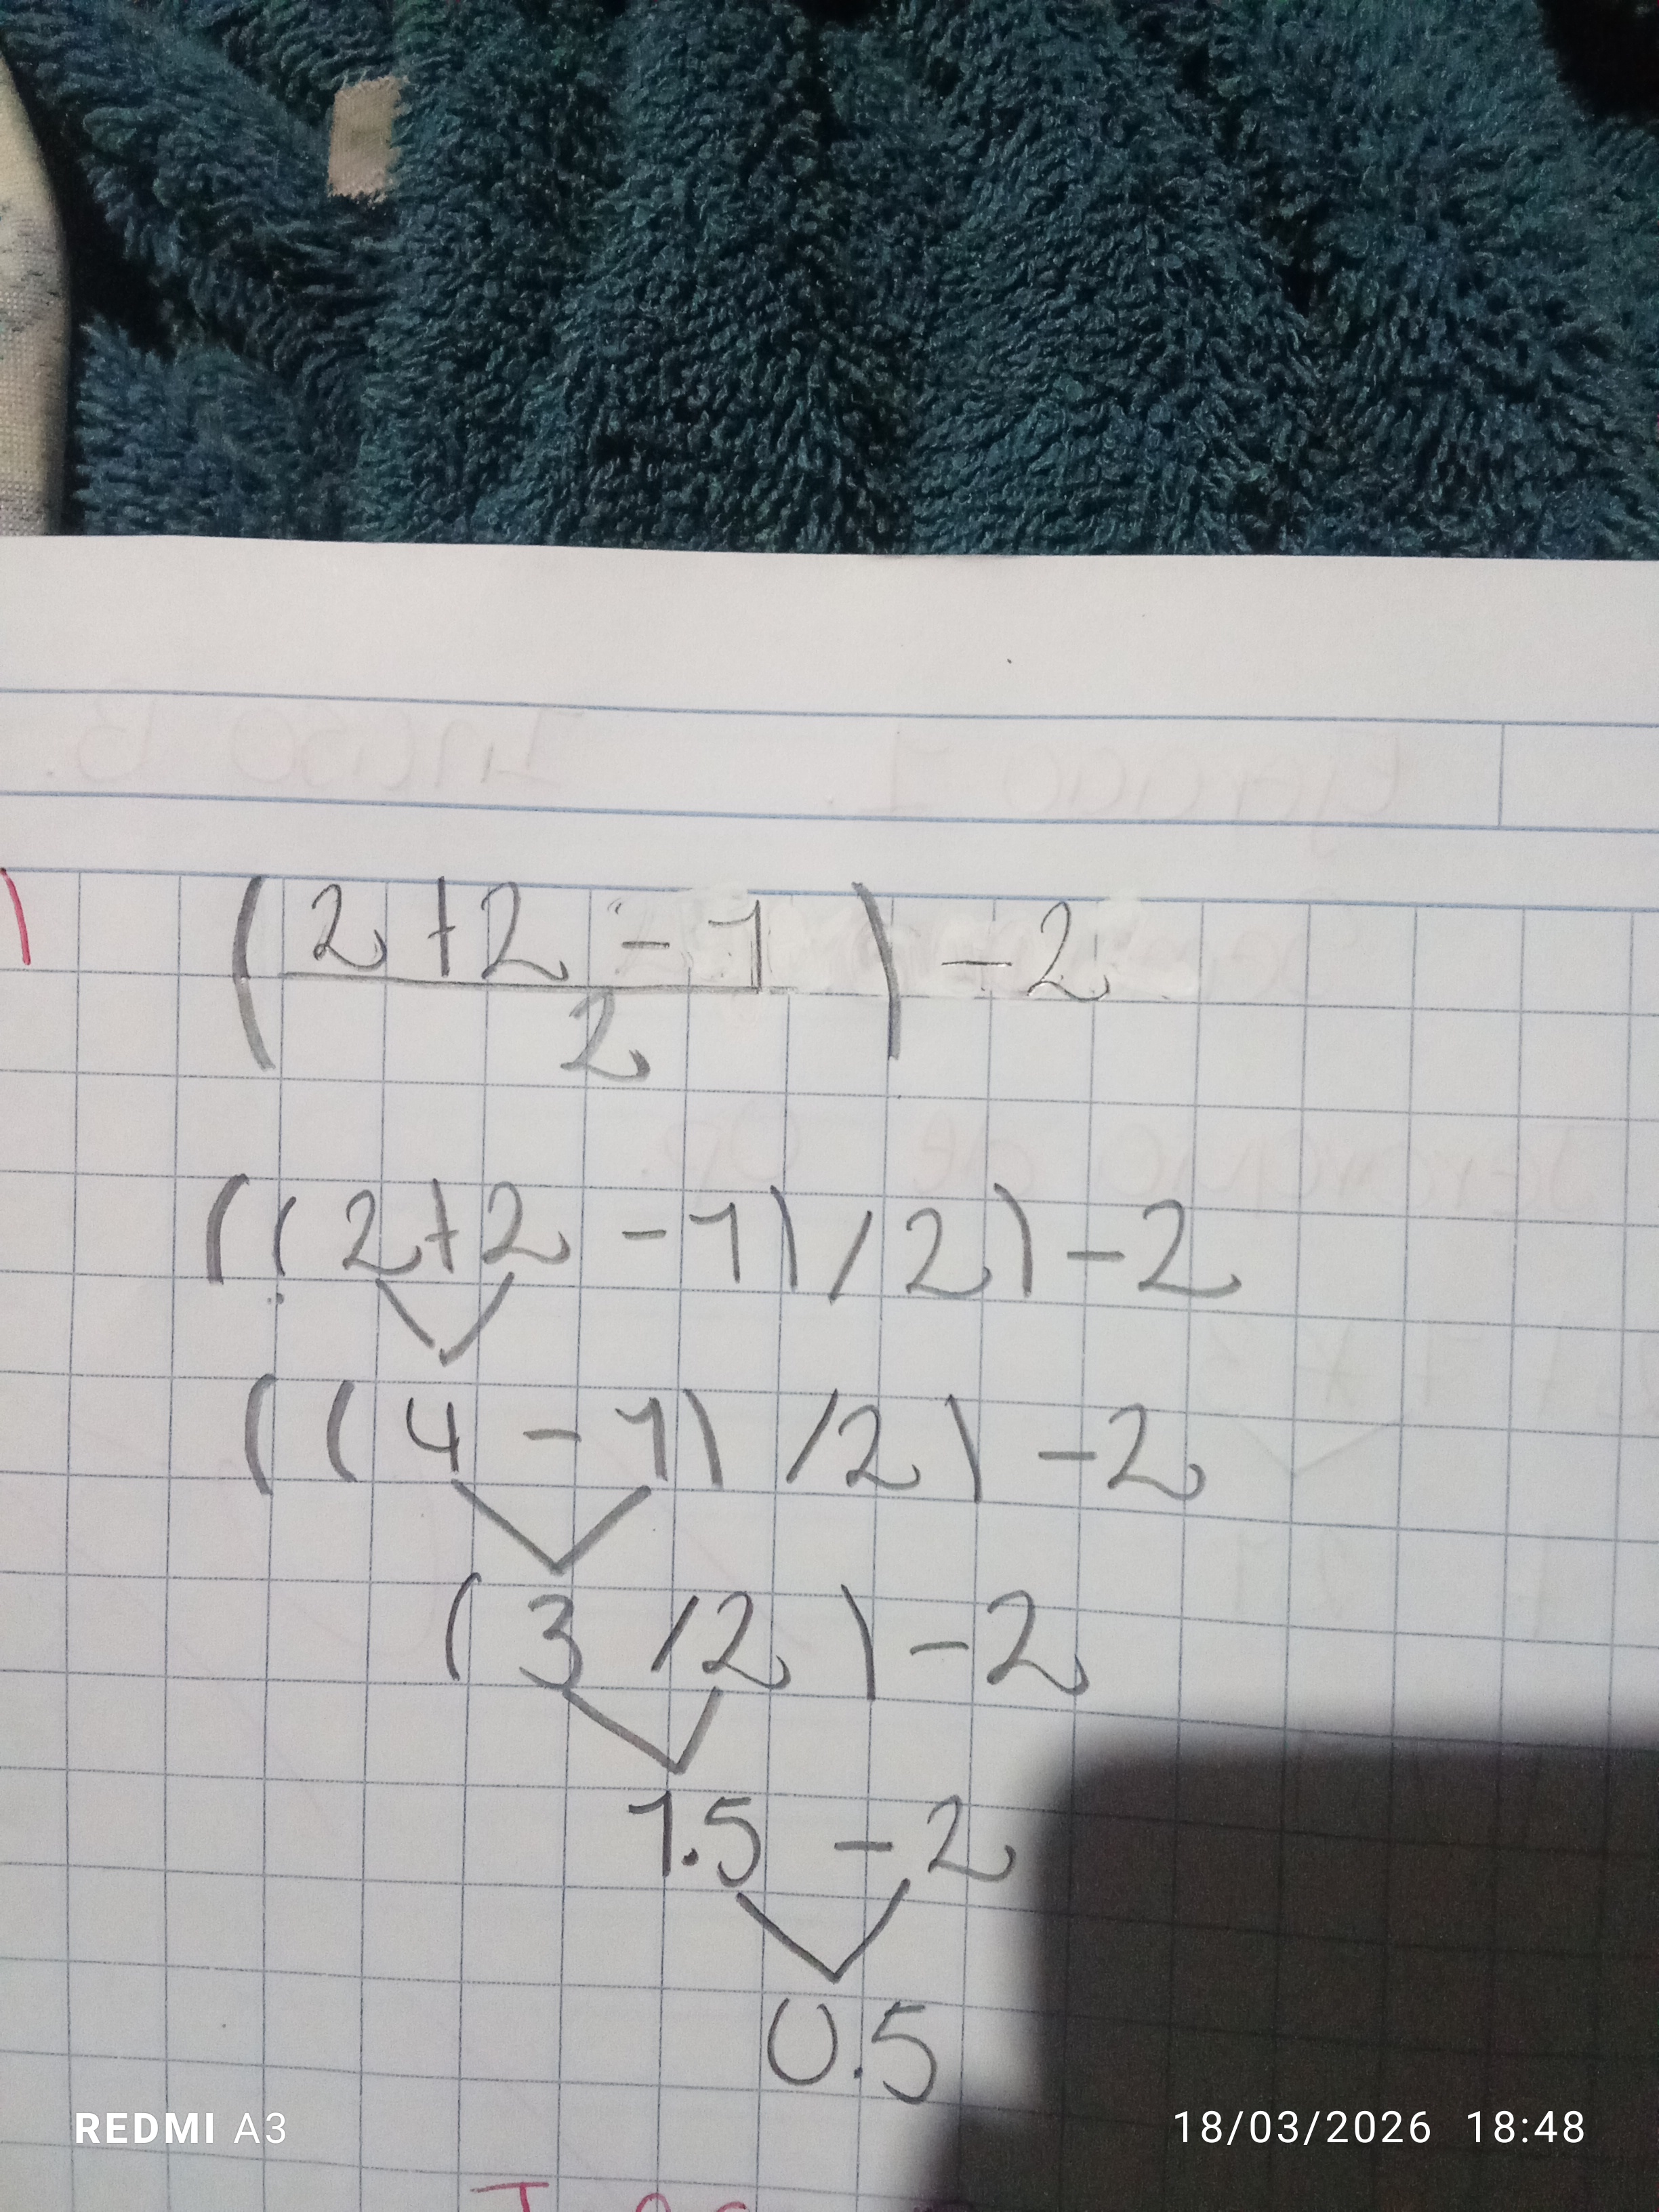 (2+2-1/2)-2
((2+2-1)/2)-2
((4-1)/2)-2
(3/2)-2
1.5-2
0.5
REDMI A3
18/03/2026 18:48